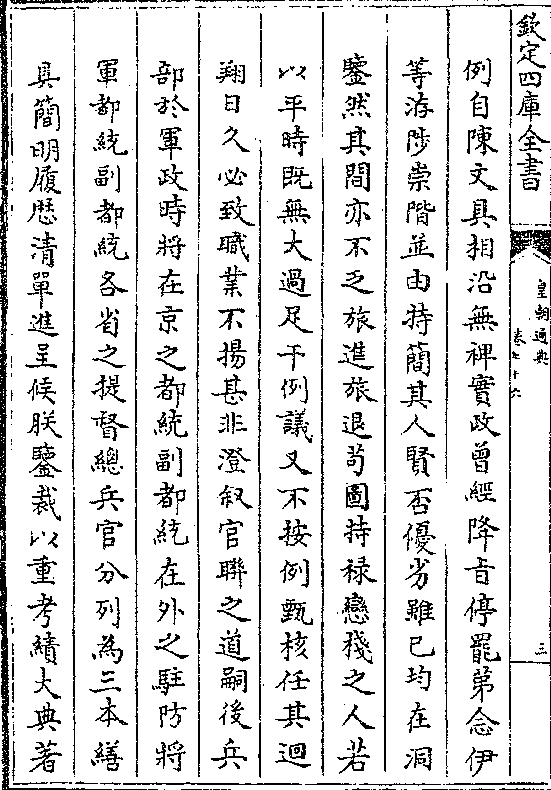 欽定四庫全書
皇朝通典
卷七十六
三
例自陳文具相沿無裨實政曾經降㫖停罷第念伊
等洊陟崇階並由特簡其人賢否優劣雖已均在洞
鑒然其間亦不乏旅進旅退茍圖持禄戀棧之人若
以平時既無大過足干例議又不按例甄核任其迴
翔日久必致職業不揚甚非澄叙官聯之道嗣後兵
部於軍政時將在京之都統副都統在外之駐防將
軍都統副都統各省之提督總兵官分列為三本繕
具簡明履歴清單進呈候朕鑒裁以重考績大典著